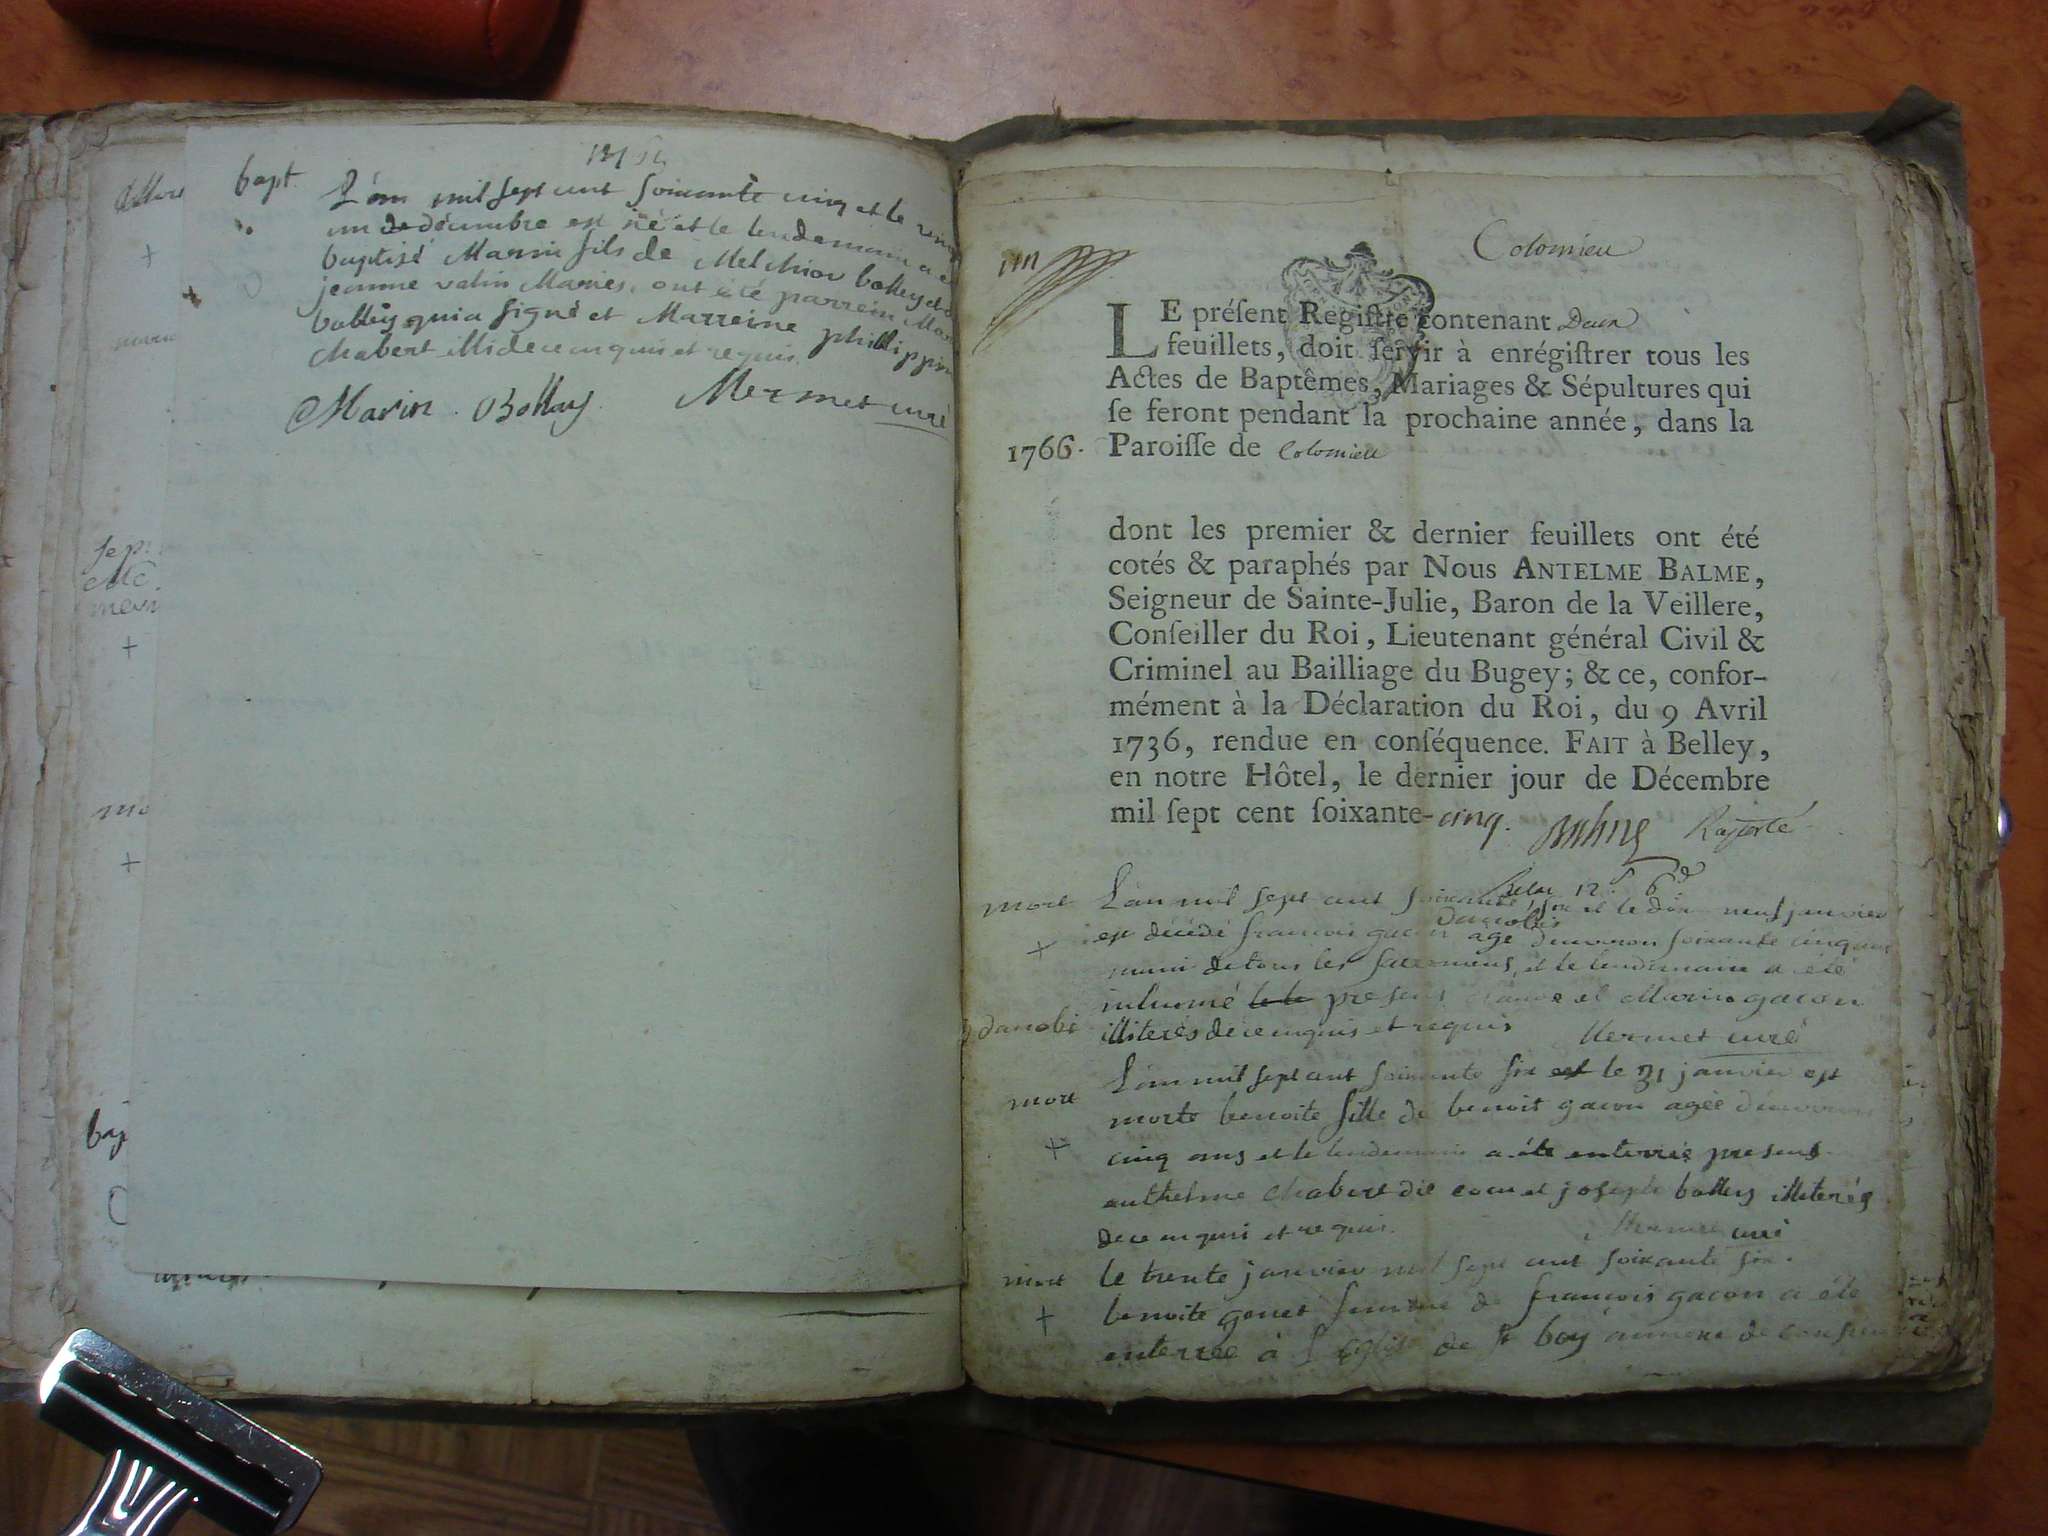 bapt.
L'an mil sept cent soixante cinq et le
un de décembre est né et le lendemain a
baptisé Marin fils de Melchior bolley et
jeanne valin Mariés, ont été parrein
bolley qui a signé et Marreine philippine
chabert illide ce enquis et requis.
Marin Bolley Mermet curé
Colomieu
LE préſent Regiſtre contenant Deux
feuillets, doit ſervir à enrégiſtrer tous les
Actes de Baptêmes, Mariages & Sépultures qui
ſe feront pendant la prochaine année, dans la
1766. Paroiſſe de Colomieu
dont les premier & dernier feuillets ont été
cotés & paraphés par Nous ANTELME BALME,
Seigneur de Sainte-Julie, Baron de la Veillere,
Conſeiller du Roi, Lieutenant général Civil &
Criminel au Bailliage du Bugey; & ce, confor-
mément à la Déclaration du Roi, du 9 Avril
1736, rendue en conſéquence. FAIT à Belley,
en notre Hôtel, le dernier jour de Décembre
mil ſept cent ſoixante-cinq. Balme
12 s 6 d
mort L'an mil sept cent soixante six et le dix neuf janvier
est décédé francois gacon danobis agé d'environ soixante cinq ans
muni de tous les sacremens, et le lendemain a été
inhumé le le presens et Marin gacon
danobi illiterés de ce enquis et requis Mermet curé
mort L'an mil sept cent soixante six est le 31 janvier est
morte benoite fille de benoit gacon agée d'environ
cinq ans et le lendemain a été enterrée presens
anthelme chabert dit et joseph bolley illiterés
de ce enquis et requis. Mermet curé
mort le trente janvier mil sept cent soixante six.
benoite genet femme de françois gacon a été
enterrée à l'Eglise de st boy annexe de